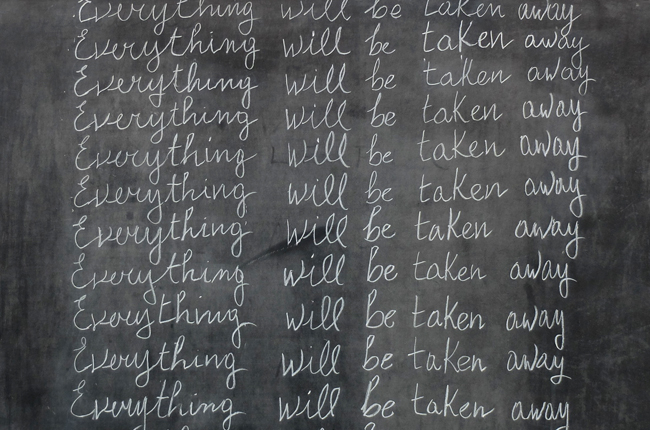 Everything will be taken away
Everything will be taken away
Everything will be taken away
Everything will be taken away
Everything will be taken away
Everything will be taken away
Everything will be taken away
Everything will be taken away
Everything will be taken away
Everything will be taken away
Everything will be taken away